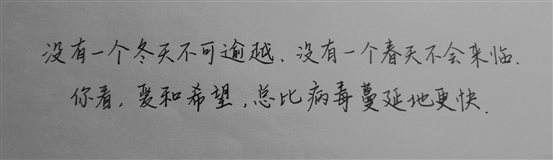 没有一个冬天不可逾越、没有一个春天不会来临.
你看,爱和希望,总比病毒蔓延地更快.